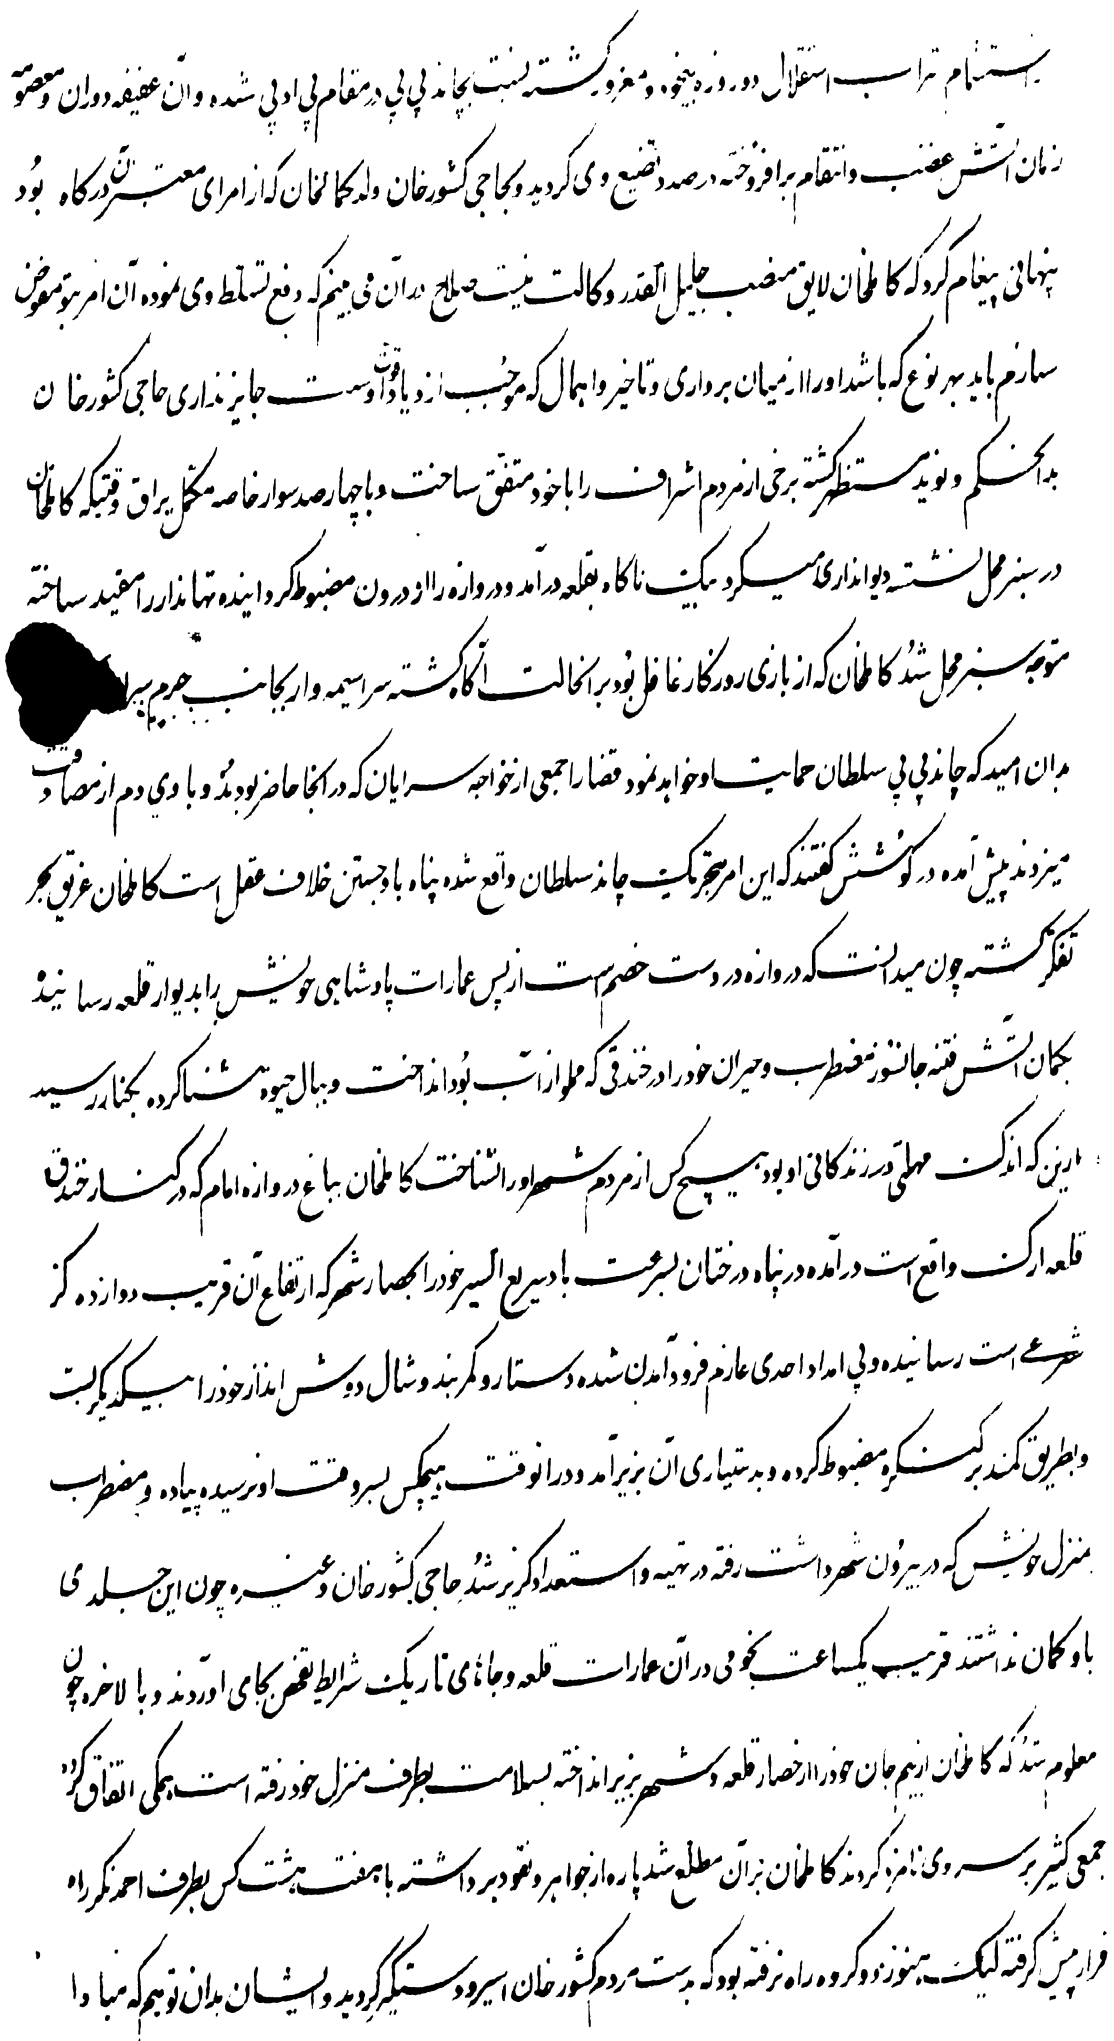 باستشمام شراب استقلال دو روزه بیخود و مغرور گشته نسبت بچاند بی بی در مقام بی ادبی شده و آن عفیفه دوران و معصومه
زمان آتش غضب و انتقام برافروخته در صدد تضییع وی گردید و بحاجی کشور خان ولد کمالخان که از امرای معتبر آن درگاه بود
پنهانی پیغام کرد که کاملخان لایق منصب جلیل القدر وکالت نیست صلاح در آن می بینم که دفع تسلط وی نموده آن امر بتو مفوض
سازم باید بهر نوع که باشد او را از میان برداری و تاخیر و اهمال که موجب ازدیاد قوت اوست جایز نداری حاجی کشور خان
بدانحکم و نوید مستظهر گشته برخی از مردم اشراف را با خود متفق ساخت و با چهارصد سوار خاصه مکمل یراق وقتیکه کاملخان
در سبز محل نشسته دیوانداری میکرد بیک ناگاه بقلعه درآمد و دروازه را از درون مضبوط گردانیده تهانه دار را مقید ساخته
متوجه سبز محل شد کاملخان که از بازی روزگار غافل بود بر انحالت آگاه گشته سراسیمه وار بجانب حرم سرا
بدان امید که چاند بی بی سلطان حمایت او خواهد نمود قضا را جمعی از خواجه سرایان که در انجا حاضر بودند و با وی دم از مصادقت
میزدند پیش آمده در گوشش گفتند که این امر بتحریک چاند سلطان واقع شده پناه باو جستن خلاف عقل است کاملخان غریق بحر
تفکر گشته چون میدانست که دروازه در دست خصم است از پس عمارات پادشاهی خویش را بدیوار قلعه رسانید
بگمان آتش فتنه جانسوز مضطرب و حیران خود را در خندقی که مملو از آب بود انداخت و ببال حیوة شنا کرده بکنار رسید
ازین که اندک مهلتی در زندگانی او بود هیچ کس از مردم شهر او را نشناخت کاملخان بباغ دروازه امام که در کنار خندق
قلعه ارک واقع است درآمده در پناه درختان بسرعت باد سریع السیر خود را بحصار شهر که ارتفاع آن قریب دوازده گز
شرعی است رسانیده و بی امداد احدی عازم فرود آمدن شده دستار و کمربند و شال دوش انداز خود را بیکدیگر بست
و بطریق کمند بر کنگره مضبوط کرده و بدستیاری آن بزیر آمد و در انوقت هیچکس بسر وقت او نرسیده پیاده و مضطرب
بمنزل خویش که در بیرون شهر داشت رفته در تهیه و استعداد گریز شد حاجی کشور خان و غیره چون این جلدی
باو گمان نداشتند قریب یکساعت نجومی در آن عمارات قلعه و جاهای تاریک شرایط تفحص بجای آوردند و بالاخره چون
معلوم شد که کاملخان از بیم جان خود را از حصار قلعه و شهر بزیر انداخته بسلامت بطرف منزل خود رفته است همگی اتفاق کرده
جمعی کثیر بر سر وی نامزد کردند کاملخان بر آن مطلع شد پاره از جواهر و نقود برداشته با هفت هشت کس بطرف احمدنگر راه
فرار پیش گرفته لیک هنوز دو کروه راه نرفته بود که بدست مردم کشور خان اسیر و دستگیر گردید و ایشان بدان توهم که مبادا